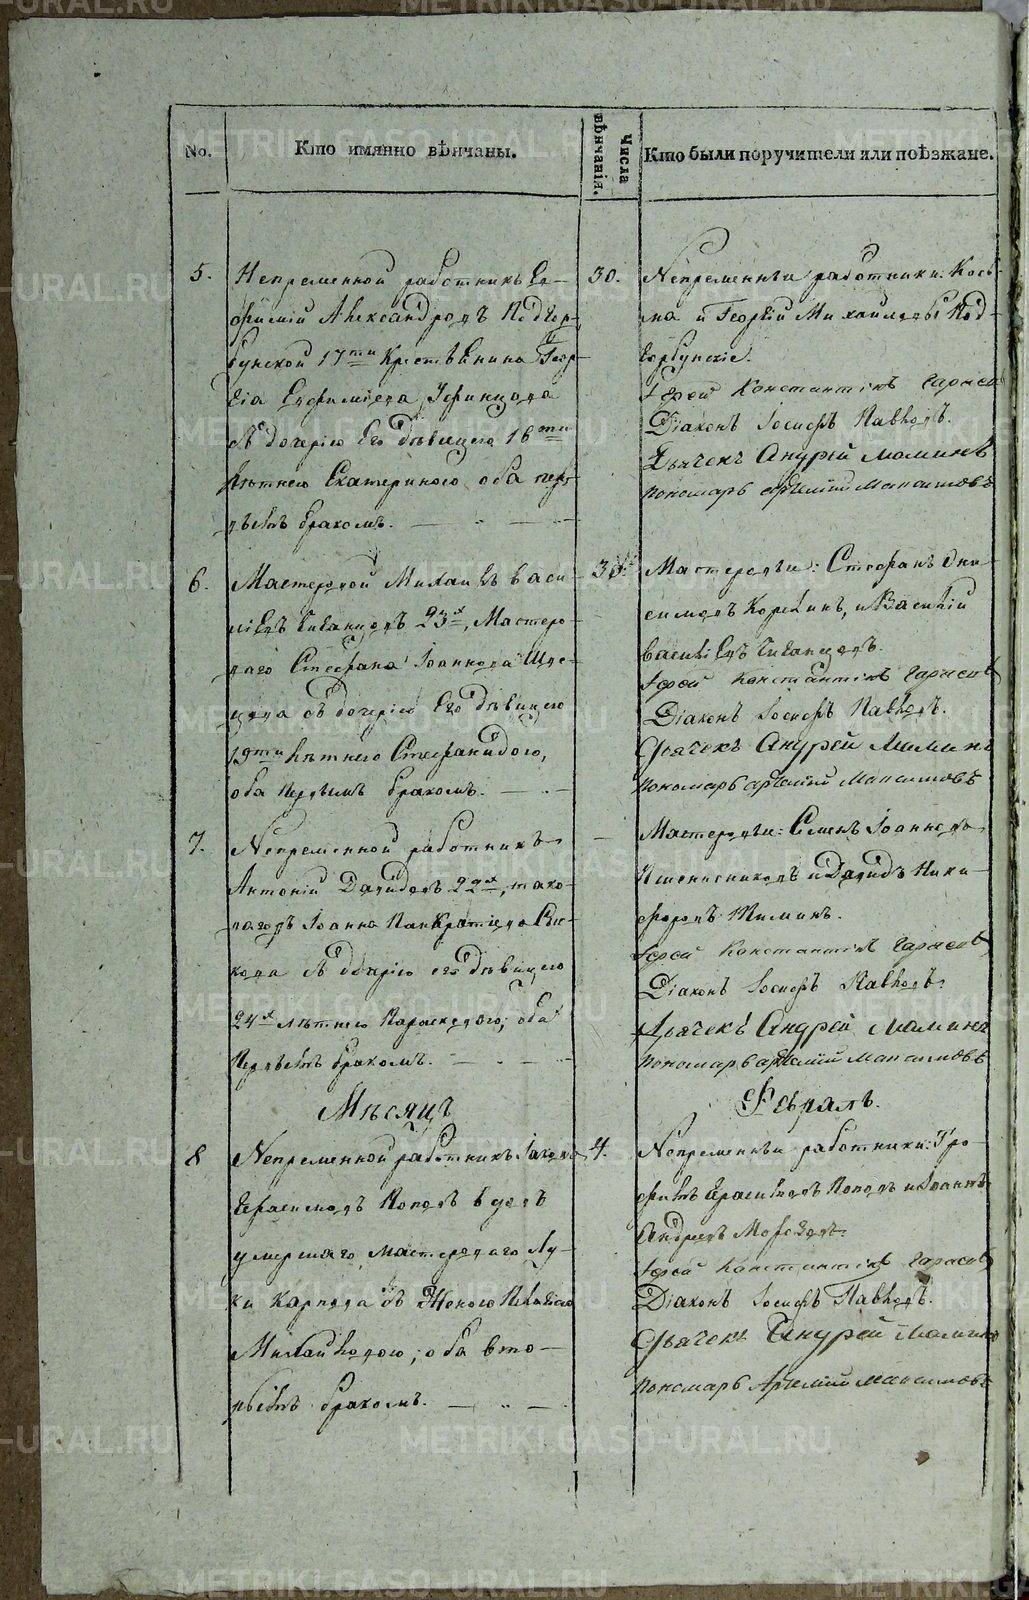 No.
Кто имянно вѣнчаны.
Числа вѣнчанія.
Кто были поручители или поѣзжане.
5. Непременной работникъ Ев-
фимій Александровъ Подкор-
17ти Крестьянина Геор-
гія Евфиміева
съ дочерью Его дѣвицею 16ти
лѣтнею Екатериною, оба пер-
вымъ бракомъ.
30.
Непременныи работники: Козь-
ма и Георгій Михайловы Под-
Іерей Константинъ
Діаконъ Іосифъ Павловъ.
Дьячекъ Андрей Маминъ
Пономарь Максимовъ
6. Мастеровой Михаилъ Васи-
ліевъ 23х, Мастеро-
ваго Стефана Іоаннова
съ дочерію Его дѣвицею
19ти лѣтнею Стефанидою,
оба первымъ бракомъ.
Мастеровыи: Стефанъ Они-
симовъ и Василій
Василіевъ
Іерей Константинъ
Діаконъ Іосифъ Павловъ.
Дьячекъ Андрей Маминъ
Пономарь Максимовъ
7. Непременной работникъ
Антоній Давидовъ 22х, тако-
вагожъ Іоанна Панкратіева
съ дочерію его дѣвицею
24х лѣтнею Параскевою, оба
первымъ бракомъ.
Мастеровыи: Семенъ Іоанновъ
Пшенисниковъ и Давидъ Ники-
форовъ
Іерей Константинъ
Діаконъ Іосифъ Павловъ.
Дьячекъ Андрей Маминъ
Пономарь Максимовъ
Мѣсяцъ
Февраль.
8 Непременной работникъ Іаковъ
Герасимовъ Поповъ вдовъ
умершаго мастероваго Лу-
ки Карпова съ Женою Пелагіею
Михайловою; оба вто-
рымъ бракомъ.
4.
Непременныи работники: Тро-
фимъ Герасимовъ Поповъ и Іоаннъ
Андреевъ Морозовъ.
Іерей Константинъ
Діаконъ Іосифъ Павловъ.
Дьячекъ Андрей Маминъ
Пономарь Максимовъ
METRIKI.GASO-URAL.RU